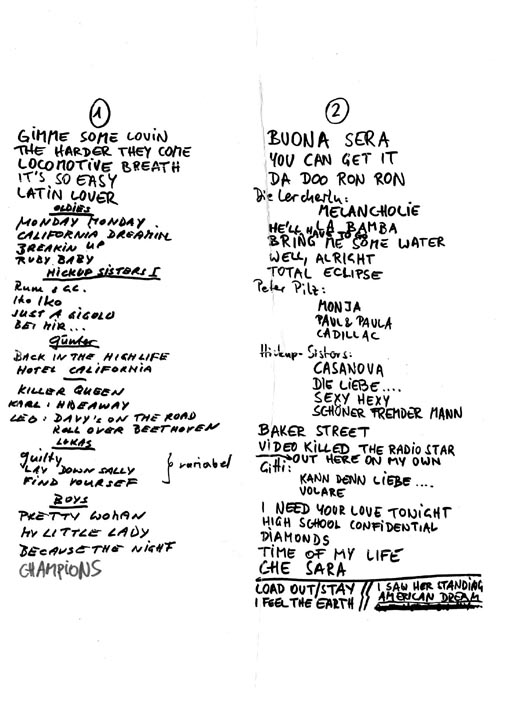 1
GIMME SOME LOVIN
THE HARDER THEY COME
LOCOMOTIVE BREATH
IT'S SO EASY
LATIN LOVER
OLDIES
MONDAY MONDAY
CALIFORNIA DREAMIN
BREAKIN UP
RUBY BABY
HICKUP SISTERS I
Rum & CC.
Iko Iko
JUST A GIGOLO
BEI MIR...
Günter
BACK IN THE HIGHLIFE
HOTEL CALIFORNIA
KILLER QUEEN
KARL: HIDEAWAY
LEO: DAVY'S ON THE ROAD
ROLL OVER BEETHOVEN
LUKAS
guilty
LAY DOWN SALLY } variabel
FIND YOURSEF
BOYS
PRETTY WOMAN
MY LITTLE LADY
BECAUSE THE NIGHT
CHAMPIONS
2
BUONA SERA
YOU CAN GET IT
DA DOO RON RON
Die Lercherln:
MELANCHOLIE
LA BAMBA
HE'LL HAVE TO GO
BRING ME SOME WATER
WELL, ALRIGHT
TOTAL ECLIPSE
Peter Pilz:
MONJA
PAUL & PAULA
CADILLAC
Hickup-Sisters:
CASANOVA
DIE LIEBE....
SEXY HEXY
SCHÖNER FREMDER MANN
BAKER STREET
VIDEO KILLED THE RADIO STAR
OUT HERE ON MY OWN
Gitti:
KANN DENN LIEBE ....
VOLARE
I NEED YOUR LOVE TONIGHT
HIGH SCHOOL CONFIDENTIAL
DIAMONDS
TIME OF MY LIFE
CHE SARA
LOAD OUT/STAY // I SAW HER STANDING
I FEEL THE EARTH // AMERICAN DREAM